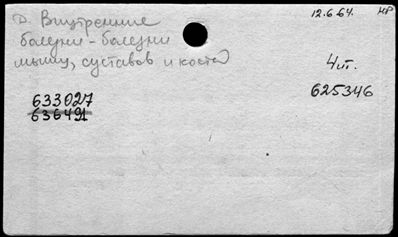 Д. Внутренние 12.6.64. НР
болезни - болезни
мышц, суставов и костей 4 шт.
625346
633027
636491